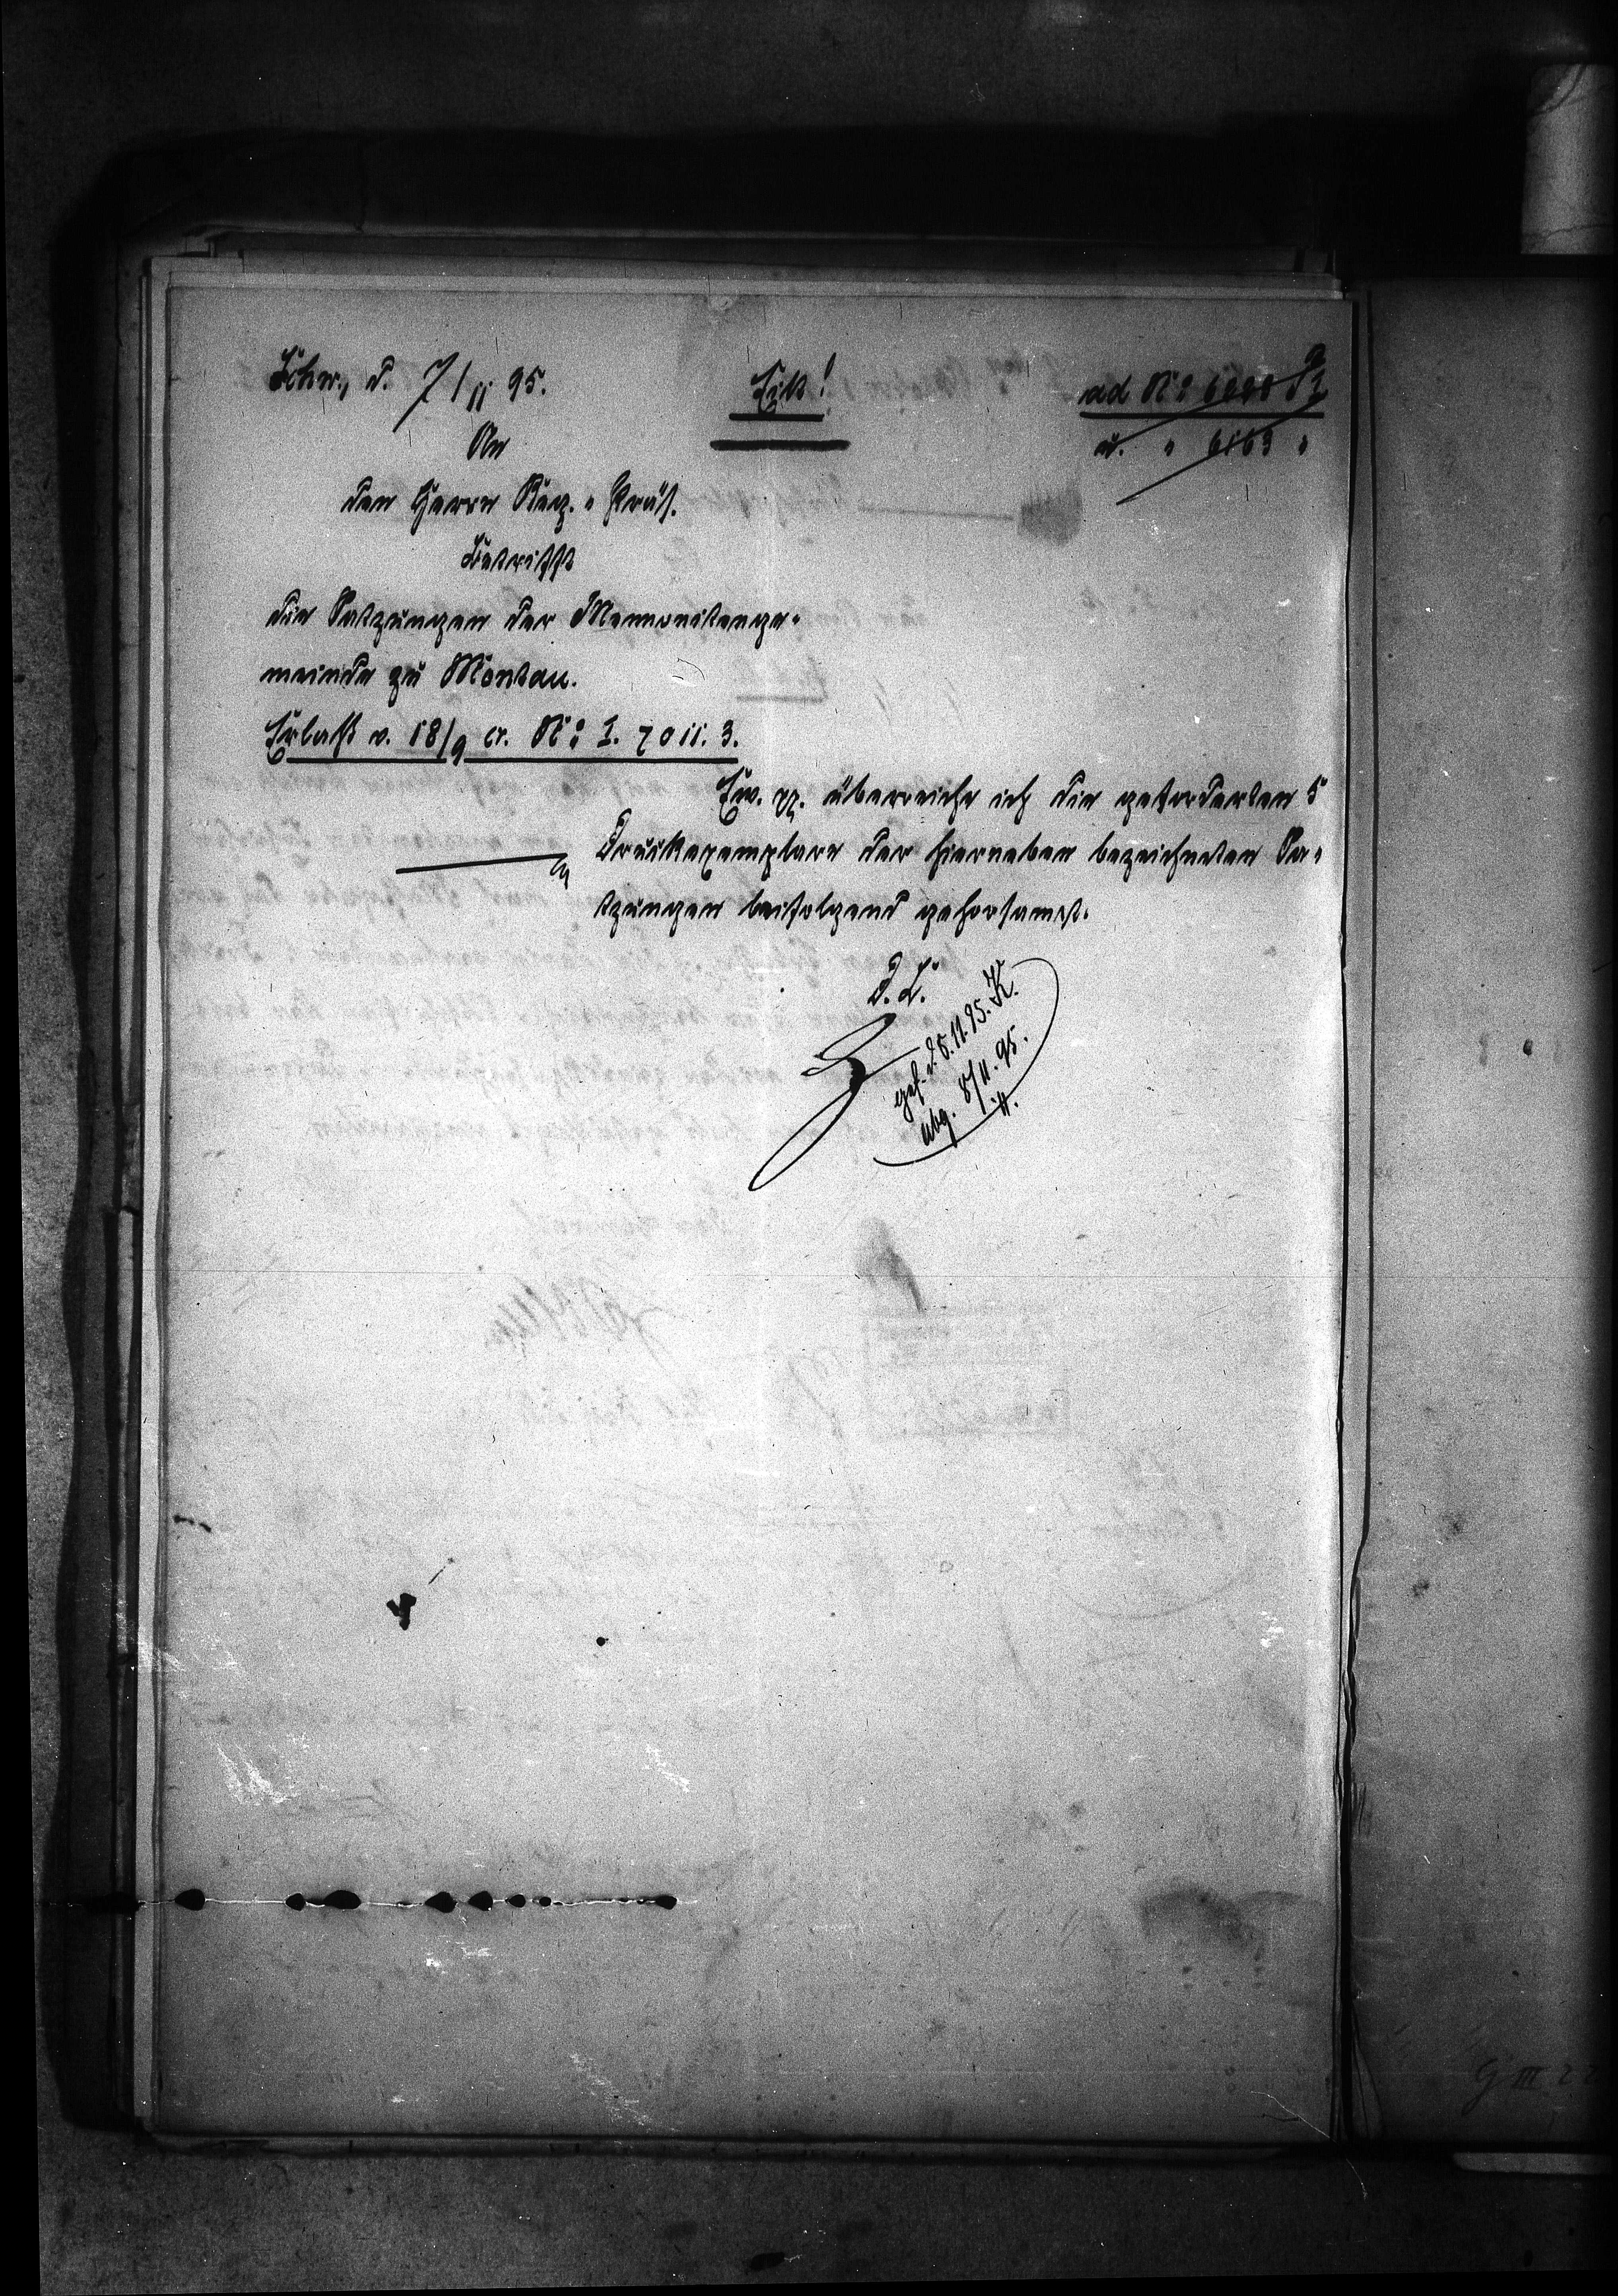 Schw., d. 7/11 95.
Eilt!
ad No 6020 P2
u. " 6163 "
An
den Herrn Reg.-Präs.
Betrifft
die Satzungen der Mennonitenge-
meinde zu Montau.
Erlaß v. 18/9 cr. No I. 7011. 3.
Ew. pp. überreiche ich die geforderten 5
Druckexemplare der hierneben bezeichneten Sa-
tzungen beifolgend gehorsamst.
D. L.
gef. d. 8. 11. 95. K.
abg. 8/11. 95.
G III 22